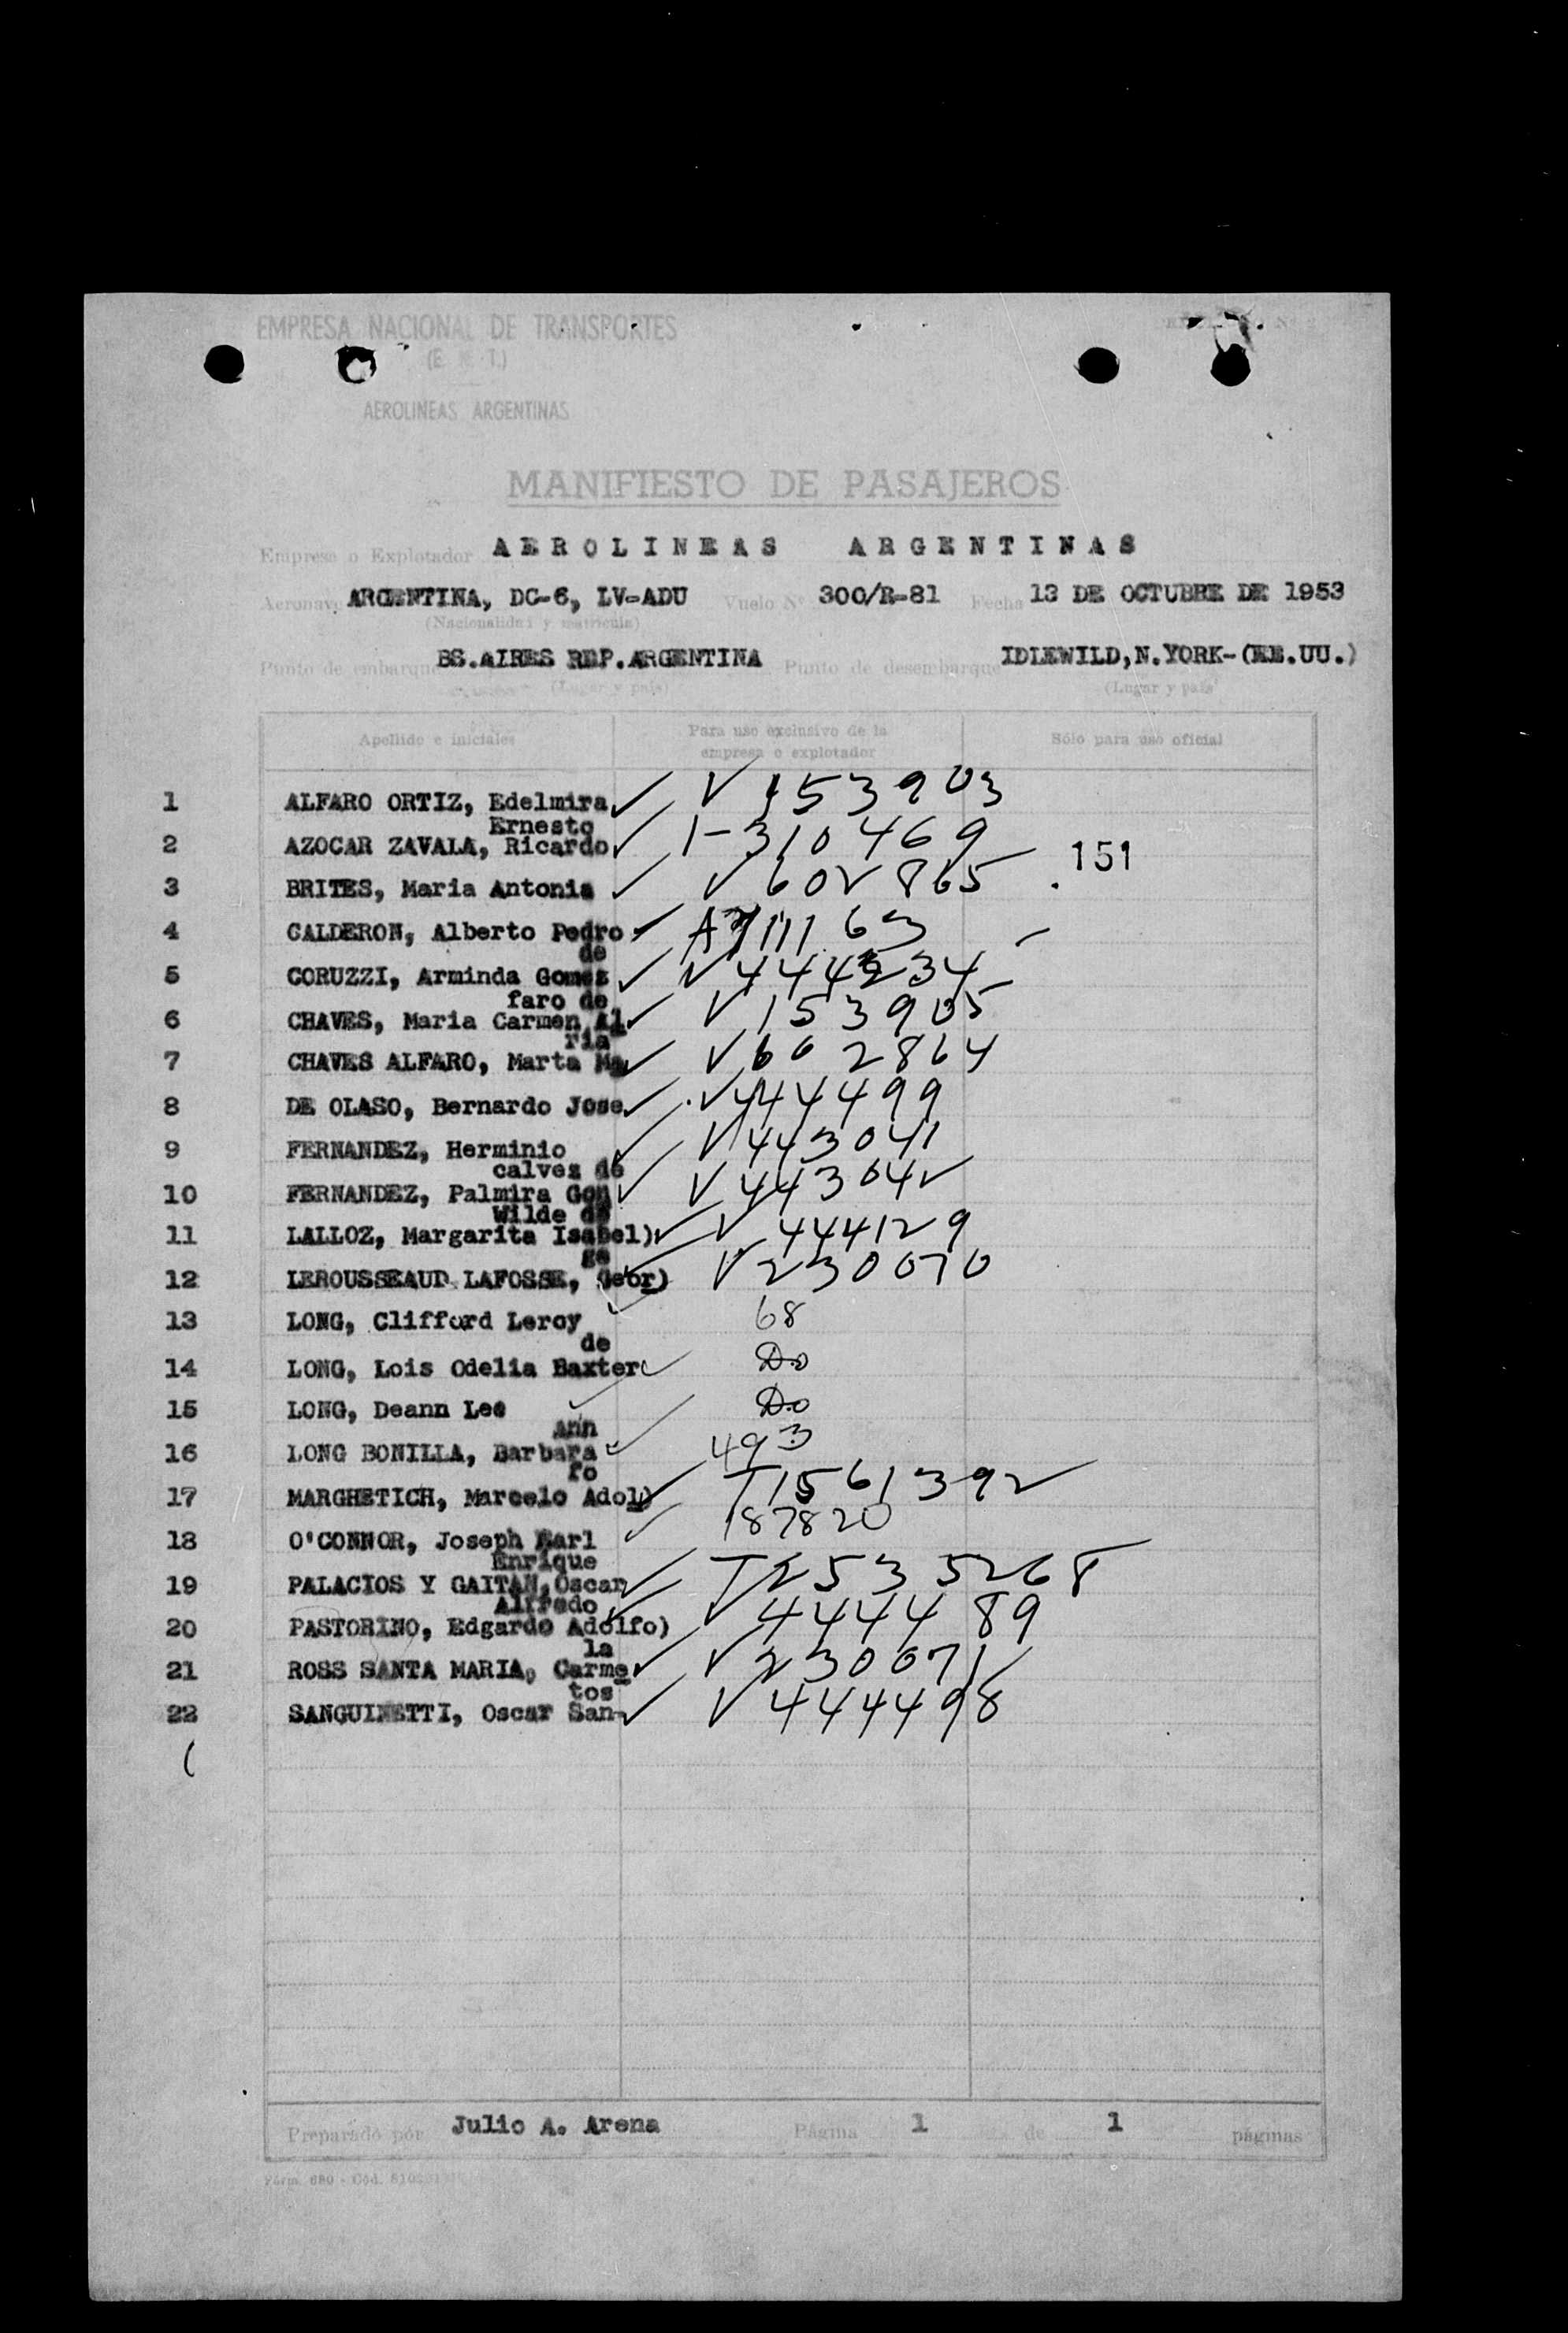 EMPRESA NACIONAL DE TRANSPORTES
(E. N. T.)
AEROLINEAS ARGENTINAS
MANIFIESTO DE PASAJEROS
Empresa o Explotador AEROLINEAS ARGENTINAS
Aeronave ARGENTINA, DC-6, LV-ADU Vuelo Nº 300/R-81 Fecha 13 DE OCTUBRE DE 1953
(Nacionalidad y matrícula)
Punto de embarque BS.AIRES REP.ARGENTINA Punto de desembarque IDLEWILD,N.YORK-(EE.UU.)
(Lugar y país) (Lugar y país)
Apellido e iniciales Para uso exclusivo de la empresa o explotador Sólo para uso oficial
1 ALFARO ORTIZ, Edelmira ✓ V 153903
Ernesto
2 AZOCAR ZAVALA, Ricardo ✓ 1-310469
151
3 BRITES, Maria Antonia ✓ V 602865
4 CALDERON, Alberto Pedro ✓
de
5 CORUZZI, Arminda Gomez ✓
faro de
6 CHAVES, Maria Carmen Al ✓ V 153905
ria
7 CHAVES ALFARO, Marta Ma ✓ V 602864
8 DE OLASO, Bernardo Jose ✓ V 444499
9 FERNANDEZ, Herminio ✓ V 443041
calvez de
10 FERNANDEZ, Palmira Gon ✓ V 443042
Wilde de
11 LALLOZ, Margarita Isabel) ✓ V 444129
ge
12 LEROUSSEAUD LAFOSSE, Geor) ✓ V 230070
13 LONG, Clifford Leroy ✓ 68
de
14 LONG, Lois Odelia Baxter ✓ Do
15 LONG, Deann Lee ✓ Do
Ann
16 LONG BONILLA, Barbara ✓ 493
fo
17 MARGHETICH, Marcelo Adol) ✓ T1561392
18 O'CONNOR, Joseph Earl ✓ 187820
Enrique
19 PALACIOS Y GAITAN, Oscar ✓ T2535268
Alfredo
20 PASTORINO, Edgardo Adolfo) ✓ V 444489
la
21 ROSS SANTA MARIA, Carme ✓ V 230071
tos
22 SANGUINETTI, Oscar San- ✓ V 444498
Preparado por Julio A. Arena Página 1 de 1 páginas